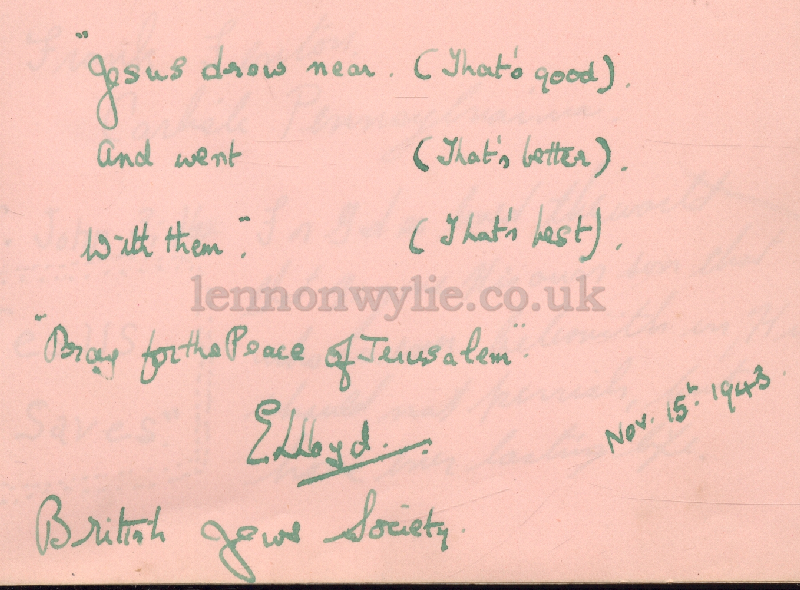 "Jesus drew near. (That's good).
And went (That's better).
With them". (That's best).
lennonwylie.co.uk
"Pray for the Peace of Jerusalem".
Nov. 15th 1943.
E Lloyd.
British Jews Society.